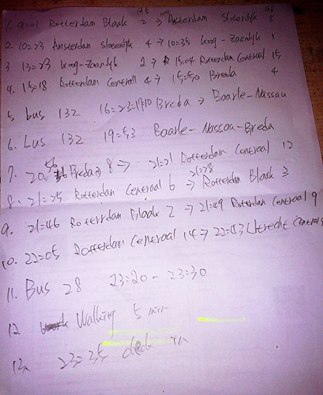 Rotterdam Blaak 2 > Amsterdam Sloterdijk
2. 10=23 Amsterdam Sloterdijk 4 → 10=35 koog - Zaandijk 1
3. 13=23 koog - Zaandijk 2 → 15=04 Rotterdam Centraal 15
4. 15=18 Rotterdam Centraal 4 → 15=50 Breda 4
5. bus 132 16=23-17=10 Breda → Baarle-Nassau
6. bus 132 19=53 Baarle-Nassau-Breda
7. Breda 8 → 21=21 Rotterdam Centraal 12
8. 21=25 Rotterdam Centraal 6 → 21=28 Rotterdam Blaak 3
9. 21=46 Rotterdam Blaak 2 → 21=49 Rotterdam Centraal 9
10. 22=05 Rotterdam Centraal 14 → 22=43 Utrecht Centraal
11. Bus 28 23=20 - 23=30
12 Walking 5 min
23=35 check in